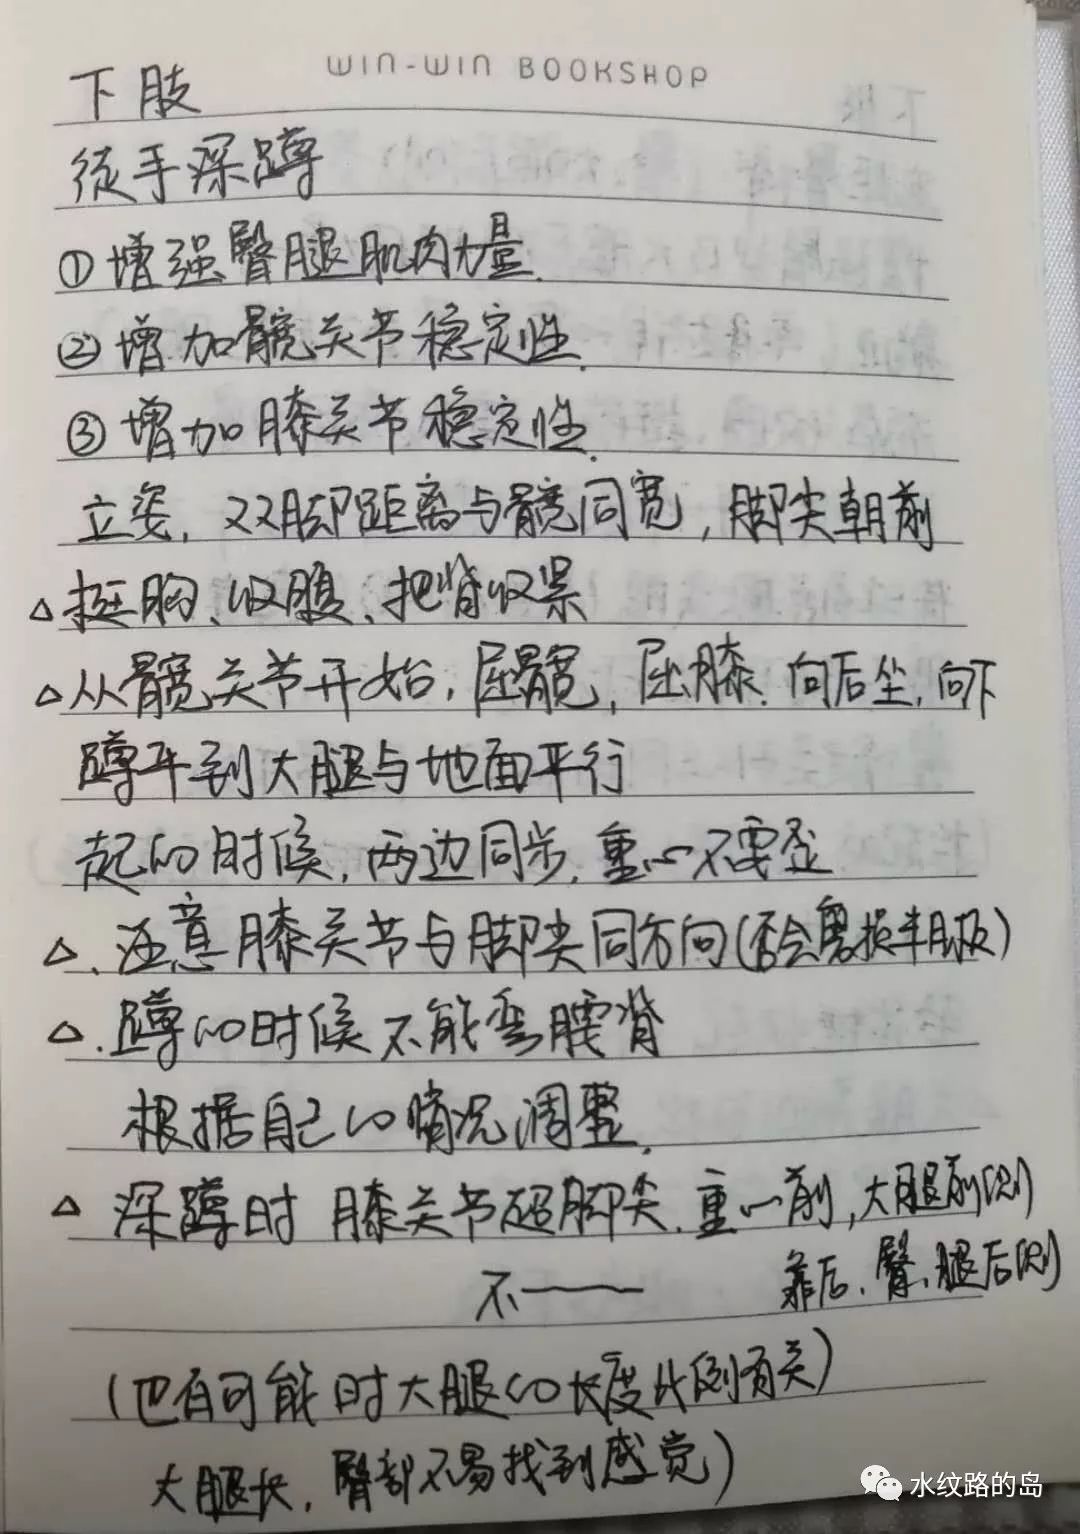 WIN-WIN BOOKSHOP
下肢
徒手深蹲
①增强臀腿肌肉力量.
②增加髋关节稳定性.
③增加膝关节稳定性.
立姿,双脚距离与髋同宽,脚尖朝前
△挺胸、收腹、把背收紧
△从髋关节开始,屈髋,屈膝.向后坐,向下
蹲平到大腿与地面平行
起的时候,两边同步,重心不要歪
△.注意膝关节与脚尖同方向(否会磨损半月板)
△.蹲的时候不能弯腰背
根据自己的情况调整.
△深蹲时 膝关节超脚尖.重心前,大腿前侧
不—— 靠后、臀、腿后侧
(也有可能时大腿的长度比例有关)
大腿长,臀部不易找到感觉)
水纹路的岛